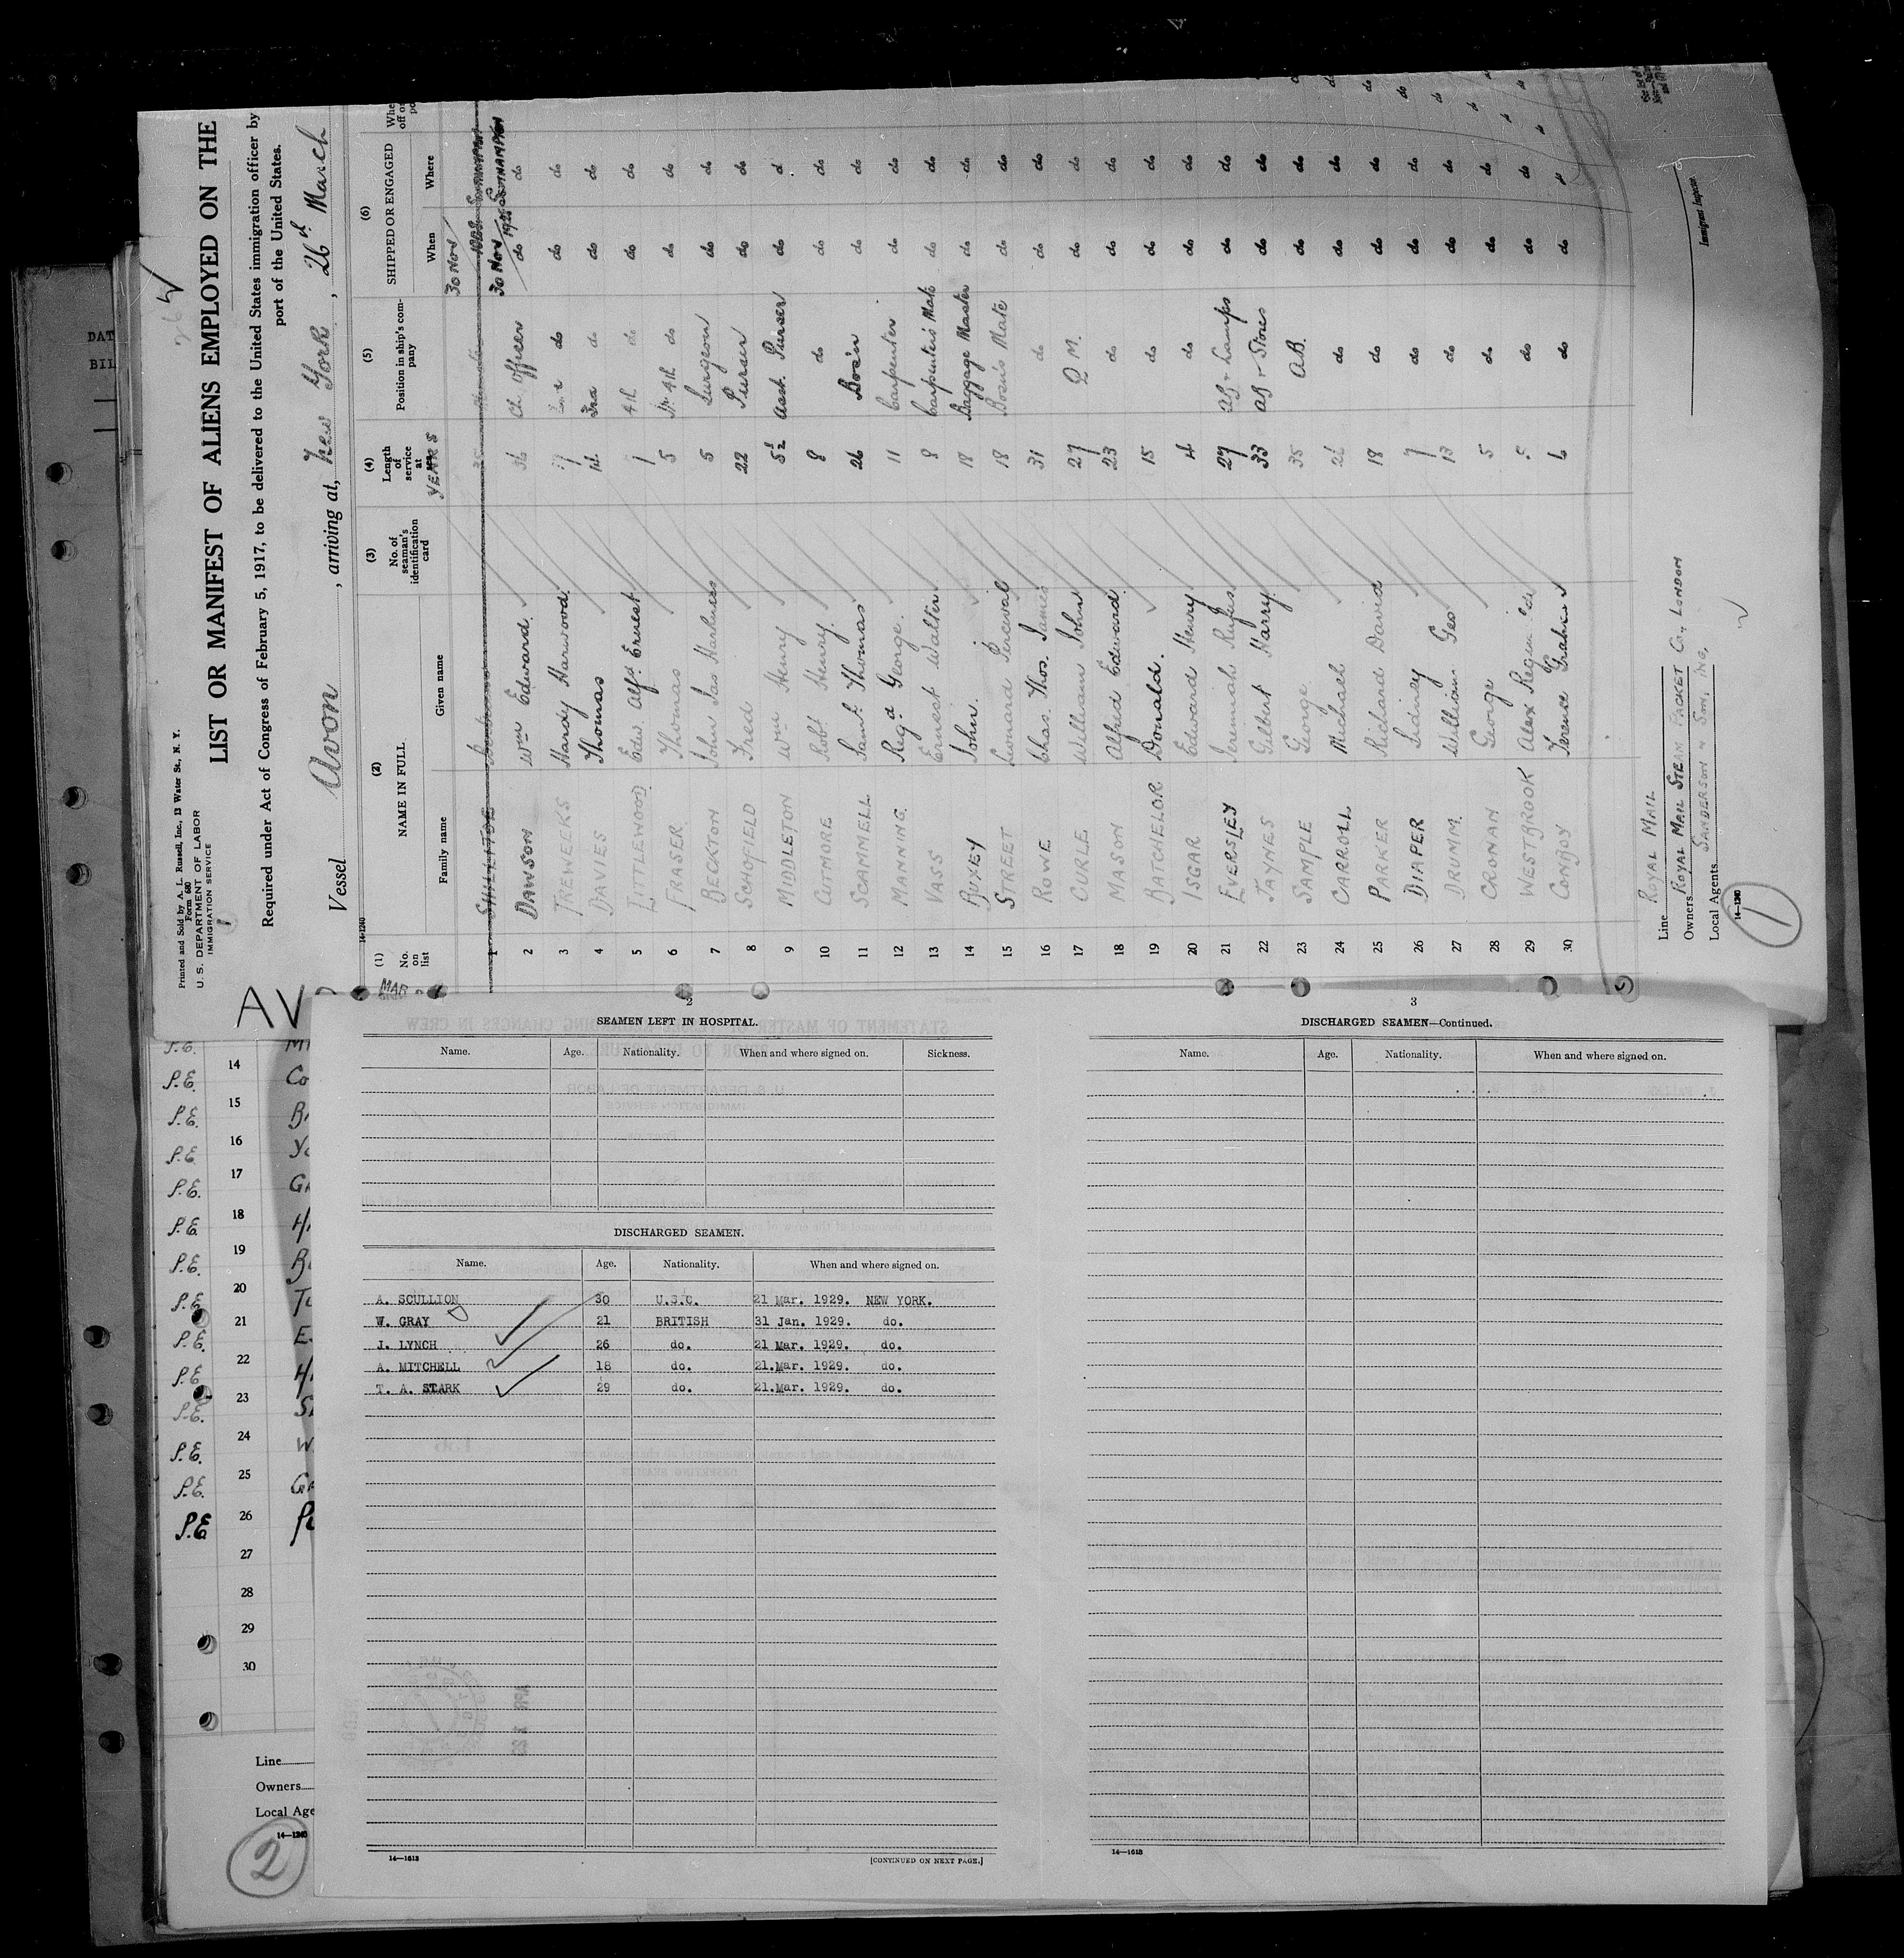 Printed and Sold by A. L. Russell, Inc., 13 Water St., N. Y.
Form 680
U. S. DEPARTMENT OF LABOR
IMMIGRATION SERVICE
LIST OR MANIFEST OF ALIENS EMPLOYED ON THE
Required under Act of Congress of February 5, 1917, to be delivered to the United States immigration officer by
port of the United States.
Vessel Avon, arriving at, New York, 26th March
14-1240
(1) (2) (3) (4) (5) (6)
No. on list
NAME IN FULL
Family name Given name
No. of seaman's identification card
Length of service at YEARS
Position in ship's company
SHIPPED OR ENGAGED
When Where
1 30 Nov
30 Nov
2 DAWSON Wm Edward. Ch. Officer do do
3 TREWEEKS Hardy Harwood. do do do
4 DAVIES Thomas 14 3rd do do do
5 LITTLEWOOD Edw. Alfd Ernest 4th do do do
6 FRASER Thomas 5 Jr. 4th do do do
7 BECKTON John Jas Harkness 5 Surgeon do do
8 SCHOFIELD Fred 22 Purser do do
9 MIDDLETON Wm Henry 5½ Asst. Purser do d
10 CUTMORE Robt Henry. 8 do do do
11 SCAMMELL Saml. Thomas 26 Bos'n do do
12 MANNING. Regd George. 11 Carpenter do do
13 VASS Ernest Walter 8 Carpenter's Mate do do
14 John. 18 Baggage Master do do
15 STREET Leonard Percival 18 Bosn's Mate do do
16 ROWE Chas. Thos. James 31 do do do
17 CURLE William John 27 Q M. do do
18 MASON Alfred Edward 23 do do do
19 BATCHELOR Donald. 15 do do do
20 ISGAR Edward Henry 4 do do do
21 EVERSLEY Jeremiah Rufus 27 AB + Lamps do do
22 JAYNES Gilbert Harry 33 AB + Stores do do
23 SAMPLE George 35 A.B. do do
24 CARROLL Michael 26 do do do
25 PARKER Richard David 18 do do do
26 DIAPER Sidney 7 do do do
27 DRUMM. William Geo 13 do do do
28 CRONAN George 5 do do do
29 WESTBROOK Alex 5 do do do
30 CONROY Terence 6 do do
Line ROYAL MAIL
Owners ROYAL MAIL STEAM PACKET Co., LONDON
Local Agents SANDERSON & SON, INC,
Immigrant Inspector.
14-1240
1
DAT
BIL
MAR
P.E.
14
P.E. Co
15
P.E.
16
P.E.
17
P.E.
18
P.E.
19
P.E.
20
P.E.
21
P.E.
22
P.E.
23
P.E.
24
P.E.
25
P.E.
26
P.E.
27
28
29
30
Line
Owners
Local Age
14-1240
2
2
SEAMEN LEFT IN HOSPITAL.
Name. Age. Nationality. When and where signed on. Sickness.
DISCHARGED SEAMEN.
Name. Age. Nationality. When and where signed on.
A. SCULLION 30 U.S.C. 21 Mar. 1929. NEW YORK.
W. GRAY 21 BRITISH 31 Jan. 1929. do.
J. LYNCH 26 do. 21 Mar. 1929. do.
A. MITCHELL 18 do. 21.Mar. 1929. do.
T. A. STARK 29 do. 21.Mar. 1929. do.
14—1613
[CONTINUED ON NEXT PAGE.]
3
DISCHARGED SEAMEN—Continued.
Name. Age. Nationality. When and where signed on.
14—1613